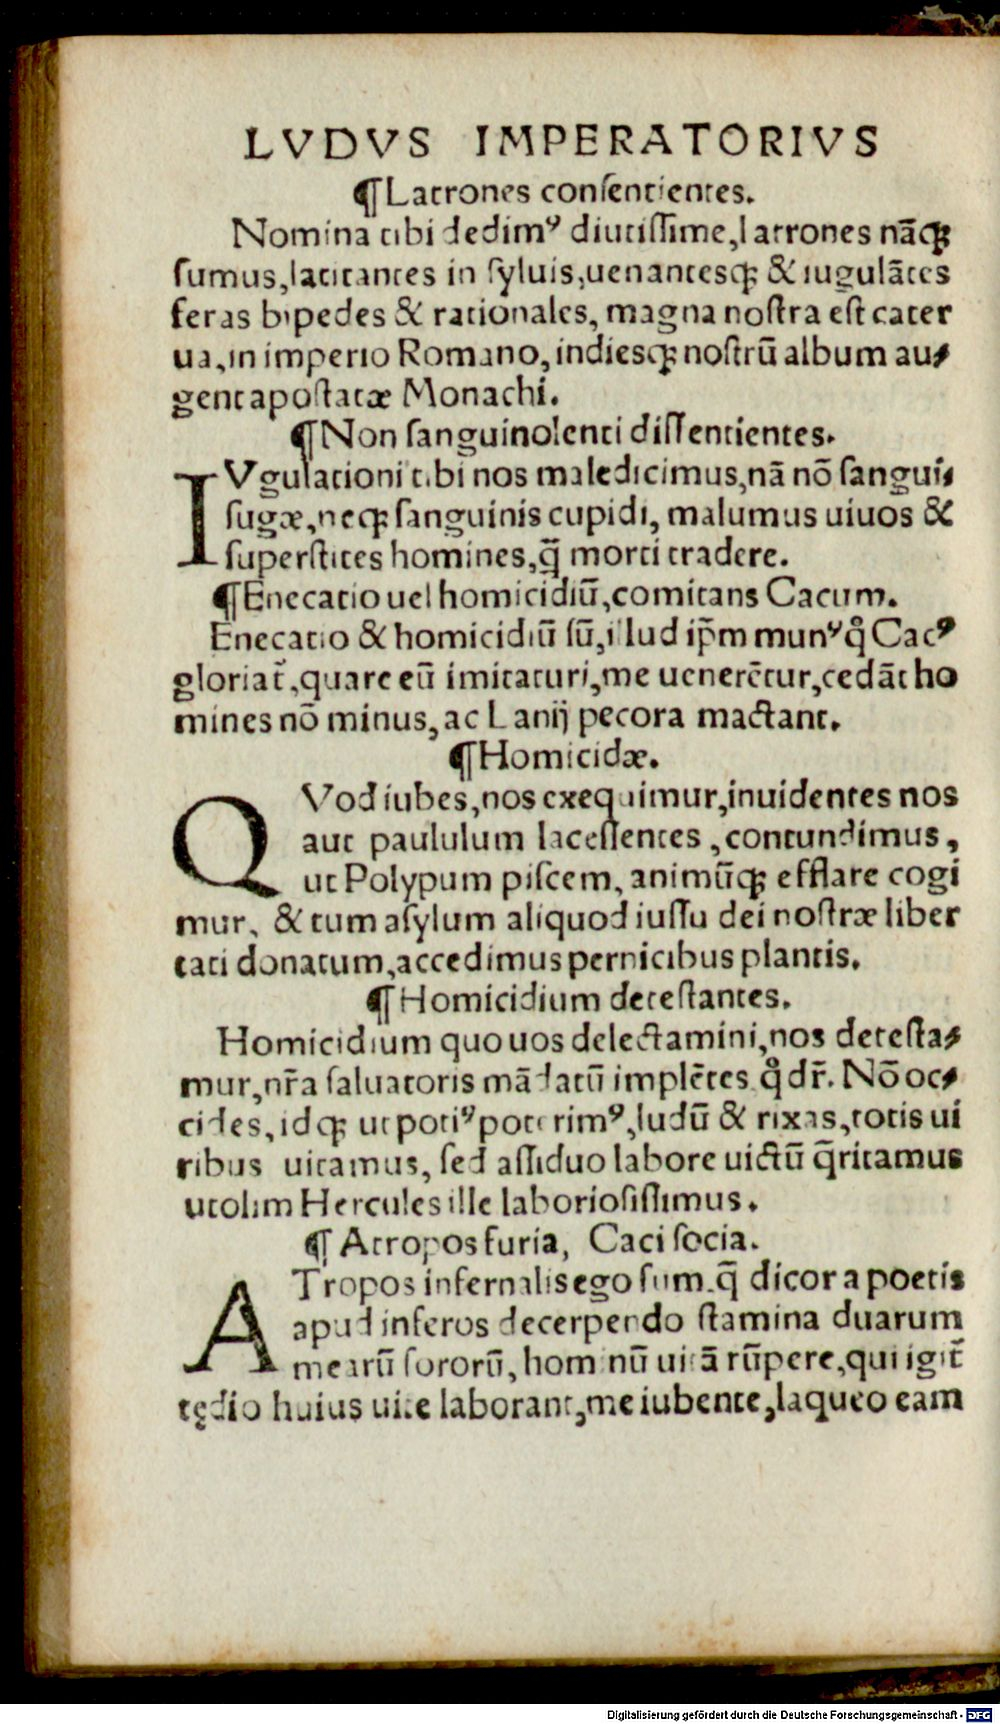 LVDVS IMPERATORIVS
¶Latrones conſentientes.
Nomina tibi dedimꝰ diutiſſime,latrones nãqꝫ
ſumus,latitantes in ſyluis,uenantesqꝫ & iugulãtes
feras bipedes & rationales, magna noſtra eſt cater
ua,in imperio Romano, indiesqꝫ noſtrũ album au⸗
gent apoſtatæ Monachi.
¶Non ſanguinolenti diſſentientes.
IVgulationi tibi nos maledicimus,nã nõ ſangui⸗
ſugæ,neqꝫ ſanguinis cupidi, malumus uiuos &
ſuperſtites homines,q̃ morti tradere.
¶Enecatio uel homicidiũ,comitans Cacum.
Enecatio & homicidiũ ſũ,illud ip̃m munꝰ qͦ Cacꝰ
gloriat᷑,quare eũ imitaturi,me uenerẽtur,cedãt ho
mines nõ minus, ac Lanij pecora mactant.
¶Homicidæ.
QVod iubes,nos exequimur,inuidentes nos
aut paululum laceſſentes , contundimus ,
ut Polypum piſcem, animũqꝫ efflare cogi
mur, & tum aſylum aliquod iuſſu dei noſtræ liber
tati donatum,accedimus pernicibus plantis.
¶Homicidium deteſtantes.
Homicidium quo uos delectamini,nos deteſta⸗
mur,nr̃a ſaluatoris mãdatũ implẽtes qͦ dr̃. Nõ oc⸗
cides, idqꝫ ut potiꝰ poterimꝰ,ludũ & rixas,totis ui
ribus uitamus, ſed aſſiduo labore uictũ q̃ritamus
ut olim Hercules ille laborioſiſſimus.
¶ Atropos furia, Caci ſocia.
ATropos infernalis ego ſum,q̃ dicor a poetis
apud inferos decerpendo ſtamina duarum
mearũ ſororũ, hominũ uitã rũpere,qui igit᷑
tędio huius uite laborant,me iubente,laqueo eam
Digitalisierung gefördert durch die Deutsche Forschungsgemeinschaft - DFG